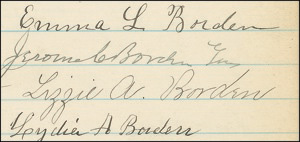 Emma L Borden
Jerome C Borden
Lizzie A. Borden
Lydia H Borden